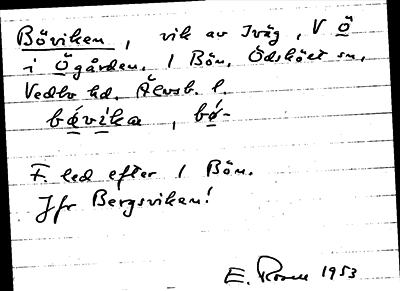 Böviken, vik av Iväg, V Ö
i Ögården. 1 Bön, Ödskölt sn,
Vedbo hd, Älvsb. l.
bǿvíka, bǿ-
F. led efter 1 Bön.
Jfr Bergsviken!
E. Rosen 1953